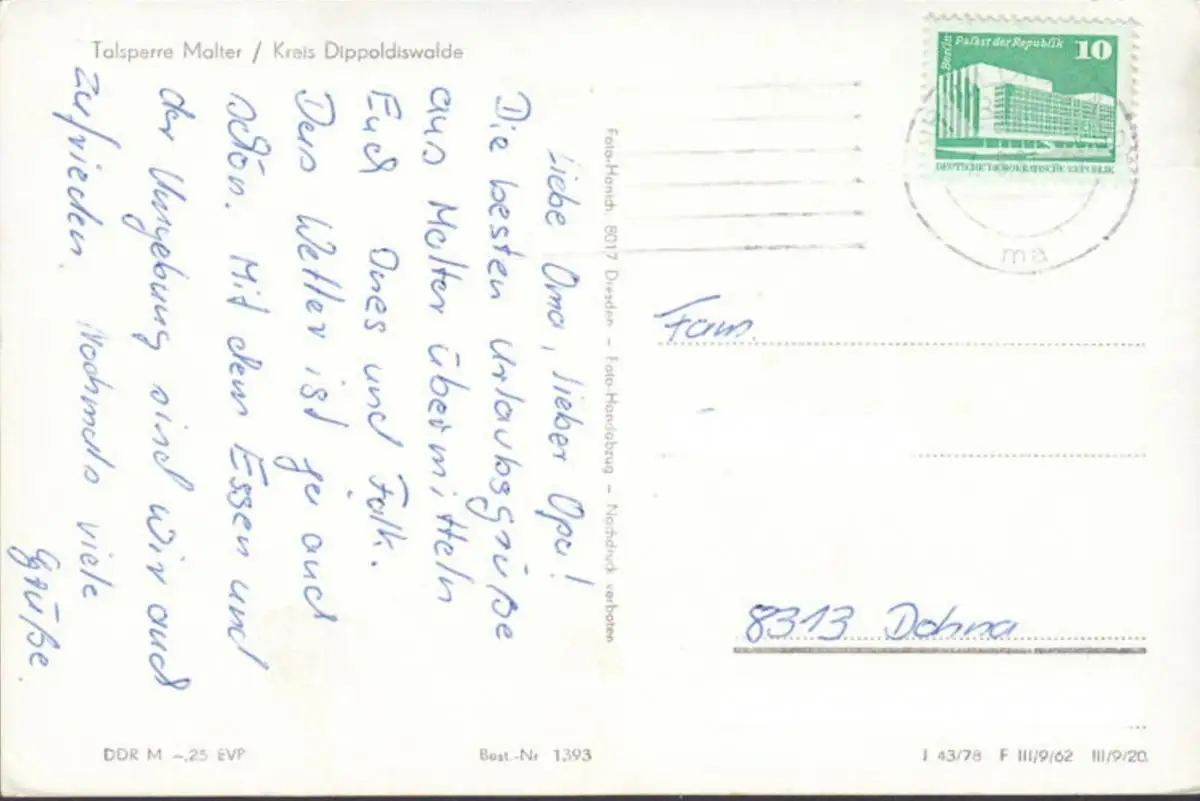 Talsperre Malter / Kreis Dippoldiswalde
Liebe Oma, lieber Opa!
Die besten Urlaubsgrüße
aus Malter übermitteln
Euch Ines und Falk.
Das Wetter ist ja auch
schön. Mit dem Essen und
der Umgebung sind wir auch
zufrieden. Nochmals viele
Grüße.
Foto-Hanich, 8017 Dresden – Foto-Handabzug – Nachdruck verboten
Berlin
Palast der Republik
10
DEUTSCHE DEMOKRATISCHE REPUBLIK
ma
Fam.
8313 Dohna
DDR M –,25 EVP
Best.-Nr 1393
J 43/78 F III/9/62 III/9/20